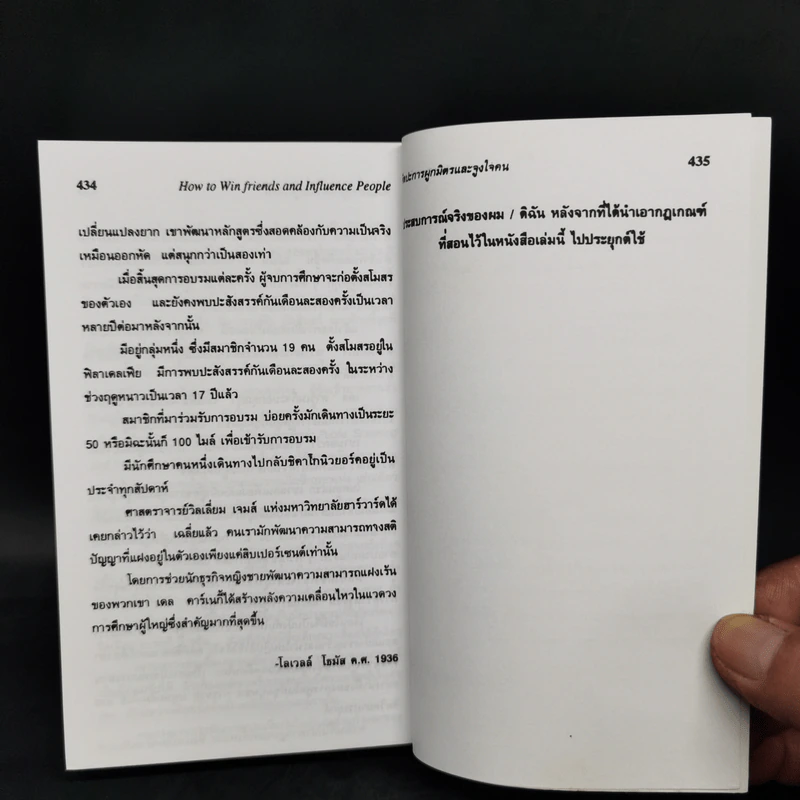 434 How to Win friends and Influence People
เปลี่ยนแปลงยาก เขาพัฒนาหลักสูตรซึ่งสอดคล้องกับความเป็นจริง
เหมือนออกหัด แต่สนุกกว่าเป็นสองเท่า
เมื่อสิ้นสุดการอบรมแต่ละครั้ง ผู้จบการศึกษาจะก่อตั้งสโมสร
ของตัวเอง และยังคงพบปะสังสรรค์กันเดือนละสองครั้งเป็นเวลา
หลายปีต่อมาหลังจากนั้น
มีอยู่กลุ่มหนึ่ง ซึ่งมีสมาชิกจำนวน 19 คน ตั้งสโมสรอยู่ใน
ฟิลาเดลเฟีย มีการพบปะสังสรรค์กันเดือนละสองครั้ง ในระหว่าง
ช่วงฤดูหนาวเป็นเวลา 17 ปีแล้ว
สมาชิกที่มาร่วมรับการอบรม บ่อยครั้งมักเดินทางเป็นระยะ
50 หรือมิฉะนั้นก็ 100 ไมล์ เพื่อเข้ารับการอบรม
มีนักศึกษาคนหนึ่งเดินทางไปกลับชิคาโกนิวยอร์คอยู่เป็น
ประจำทุกสัปดาห์
ศาสตราจารย์วิลเลี่ยม เจมส์ แห่งมหาวิทยาลัยฮาร์วาร์ดได้
เคยกล่าวไว้ว่า เฉลี่ยแล้ว คนเรามักพัฒนาความสามารถทางสติ
ปัญญาที่แฝงอยู่ในตัวเองเพียงแค่สิบเปอร์เซนต์เท่านั้น
โดยการช่วยนักธุรกิจหญิงชายพัฒนาความสามารถแฝงเร้น
ของพวกเขา เดล คาร์เนกี้ได้สร้างพลังความเคลื่อนไหวในแวดวง
การศึกษาผู้ใหญ่ซึ่งสำคัญมากที่สุดขึ้น
-โลเวลล์ โธมัส ค.ศ. 1936
ศิลปะการผูกมิตรและจูงใจคน 435
ประสบการณ์จริงของผม / ดิฉัน หลังจากที่ได้นำเอากฎเกณฑ์
ที่สอนไว้ในหนังสือเล่มนี้ ไปประยุกต์ใช้